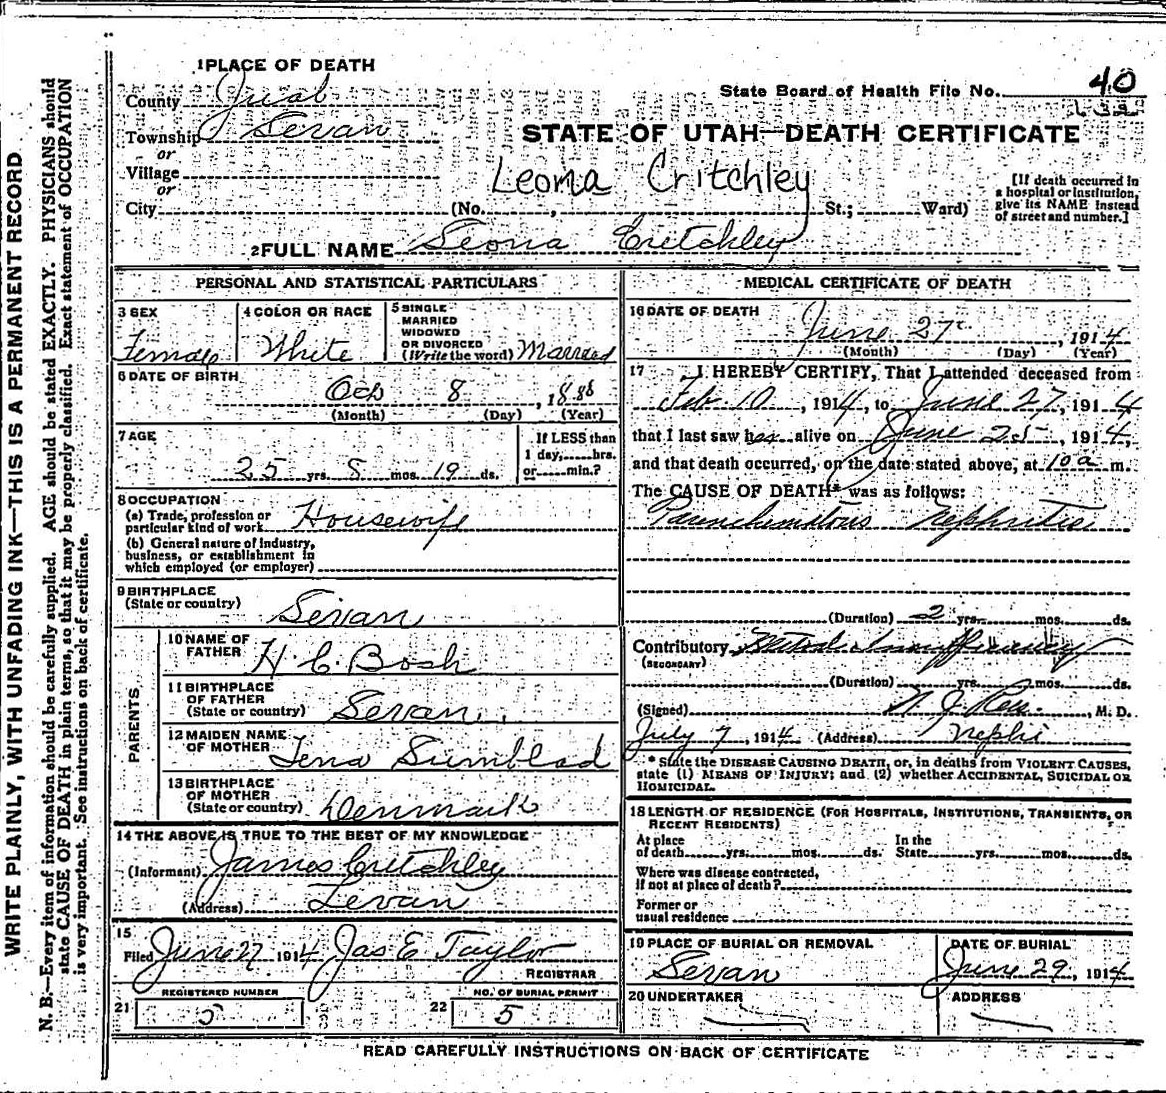 1 PLACE OF DEATH
County Juab
State Board of Health File No. 40
Township Levan
or
Village
or
City (No. , St.; Ward)
STATE OF UTAH—DEATH CERTIFICATE
Leona Critchley
[If death occurred in
a hospital or institution,
give its NAME instead
of street and number.]
2 FULL NAME Leona Critchley
PERSONAL AND STATISTICAL PARTICULARS
3 SEX
Female
4 COLOR OR RACE
White
5 SINGLE
MARRIED
WIDOWED
OR DIVORCED
(Write the word) Married
6 DATE OF BIRTH
Oct 8, 1888
(Month) (Day) (Year)
7 AGE
25 yrs. 8 mos. 19 ds.
If LESS than
1 day, hrs.
or min.?
8 OCCUPATION
(a) Trade, profession or
particular kind of work Housewife
(b) General nature of Industry,
business, or establishment in
which employed (or employer)
9 BIRTHPLACE
(State or country) Levan
PARENTS
10 NAME OF
FATHER H. C. Bosh
11 BIRTHPLACE
OF FATHER
(State or country) Levan
12 MAIDEN NAME
OF MOTHER Tena Sumblad
13 BIRTHPLACE
OF MOTHER
(State or country) Denmark
14 THE ABOVE IS TRUE TO THE BEST OF MY KNOWLEDGE
(Informant) James Critchley
(Address) Levan
15
Filed June 27 1914 Jas E Taylor
REGISTRAR
REGISTERED NUMBER
21 5
NO. OF BURIAL PERMIT
22 5
MEDICAL CERTIFICATE OF DEATH
16 DATE OF DEATH
June 27, 1914
(Month) (Day) (Year)
17 I HEREBY CERTIFY, That I attended deceased from
Feb 10, 1914, to June 27, 1914
that I last saw her alive on June 25, 1914,
and that death occurred, on the date stated above, at 10 a m.
The CAUSE OF DEATH* was as follows:
Parenchymatous Nephritis
(Duration) 2 yrs. mos. ds.
Contributory Mitral Insufficiency
(SECONDARY)
(Duration) yrs. mos. ds.
(Signed) , M. D.
July 7, 1914 (Address) Nephi
* State the DISEASE CAUSING DEATH, or, in deaths from VIOLENT CAUSES,
state (1) MEANS OF INJURY; and (2) whether ACCIDENTAL, SUICIDAL OR
HOMICIDAL.
18 LENGTH OF RESIDENCE (FOR HOSPITALS, INSTITUTIONS, TRANSIENTS, OR
RECENT RESIDENTS)
At place
of death yrs. mos. ds.
In the
State yrs. mos. ds.
Where was disease contracted,
if not at place of death?
Former or
usual residence
19 PLACE OF BURIAL OR REMOVAL
Levan
DATE OF BURIAL
June 29, 1914
20 UNDERTAKER
ADDRESS
READ CAREFULLY INSTRUCTIONS ON BACK OF CERTIFICATE
WRITE PLAINLY, WITH UNFADING INK—THIS IS A PERMANENT RECORD
N. B.—Every item of information should be carefully supplied. AGE should be stated EXACTLY. PHYSICIANS should
state CAUSE OF DEATH in plain terms, so that it may be properly classified. Exact statement of OCCUPATION
is very important. See instructions on back of certificate.